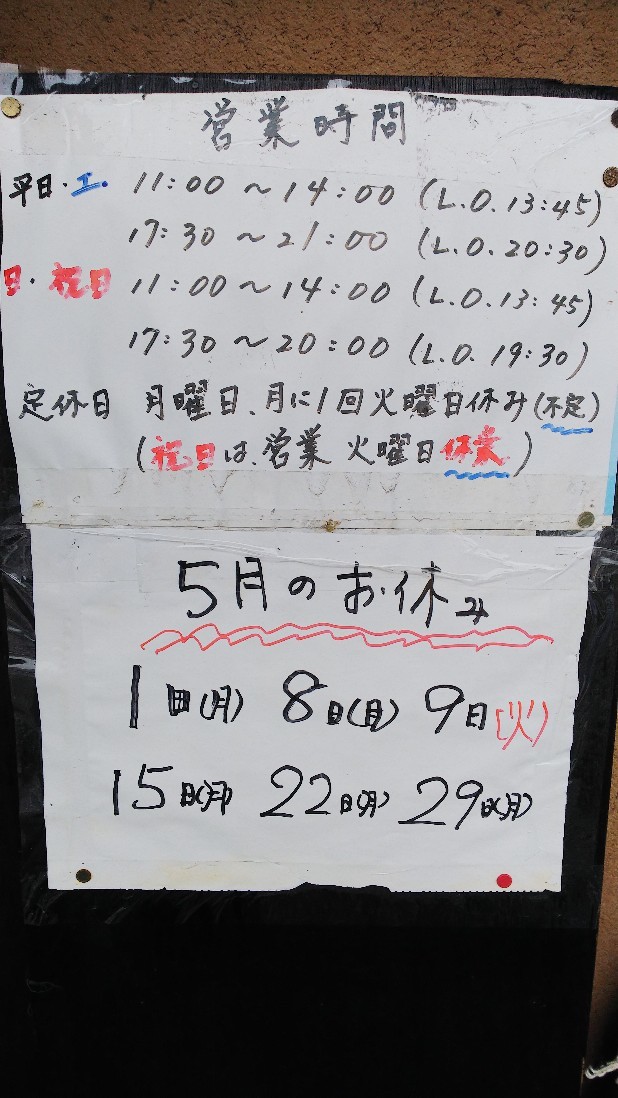 営業時間
平日・土. 11:00 ~ 14:00 (L.O.13:45)
17:30 ~ 21:00 (L.O.20:30)
日・祝日 11:00 ~ 14:00 (L.O.13:45)
17:30 ~ 20:00 (L.O.19:30)
定休日 月曜日、月に1回火曜日休み(不定)
(祝日は、営業 火曜日休業)
5月のお休み
1日(月) 8日(月) 9日(火)
15日(月) 22日(月) 29日(月)